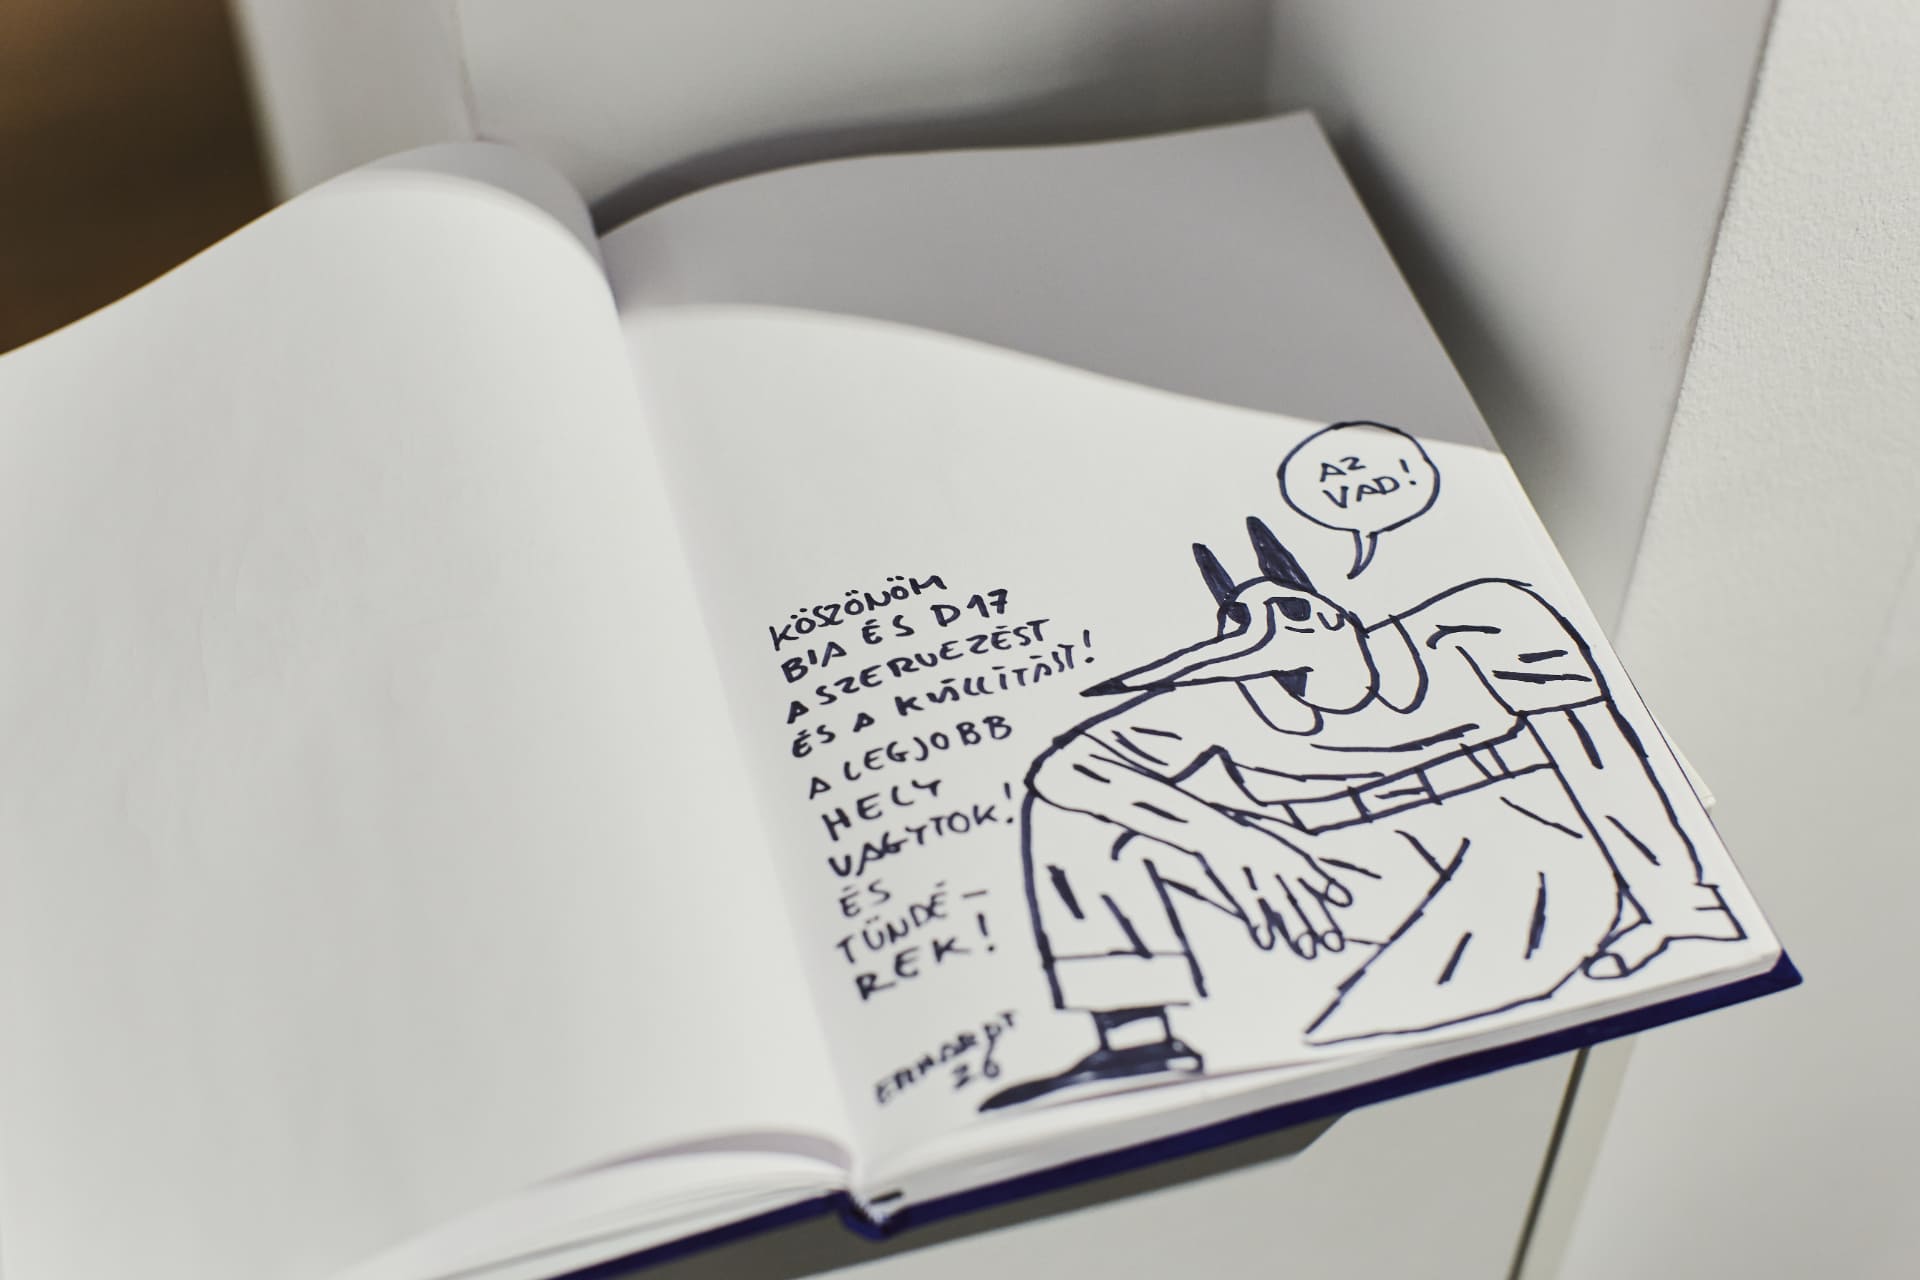 KÖSZÖNÖM
BIA ÉS D17
A SZERVEZÉST
ÉS A KIÁLLÍTÁST!
A LEGJOBB
HELY
VAGYTOK!
ÉS
TÜNDÉ-
REK!
ERHARDT
26
AZ
VAD!